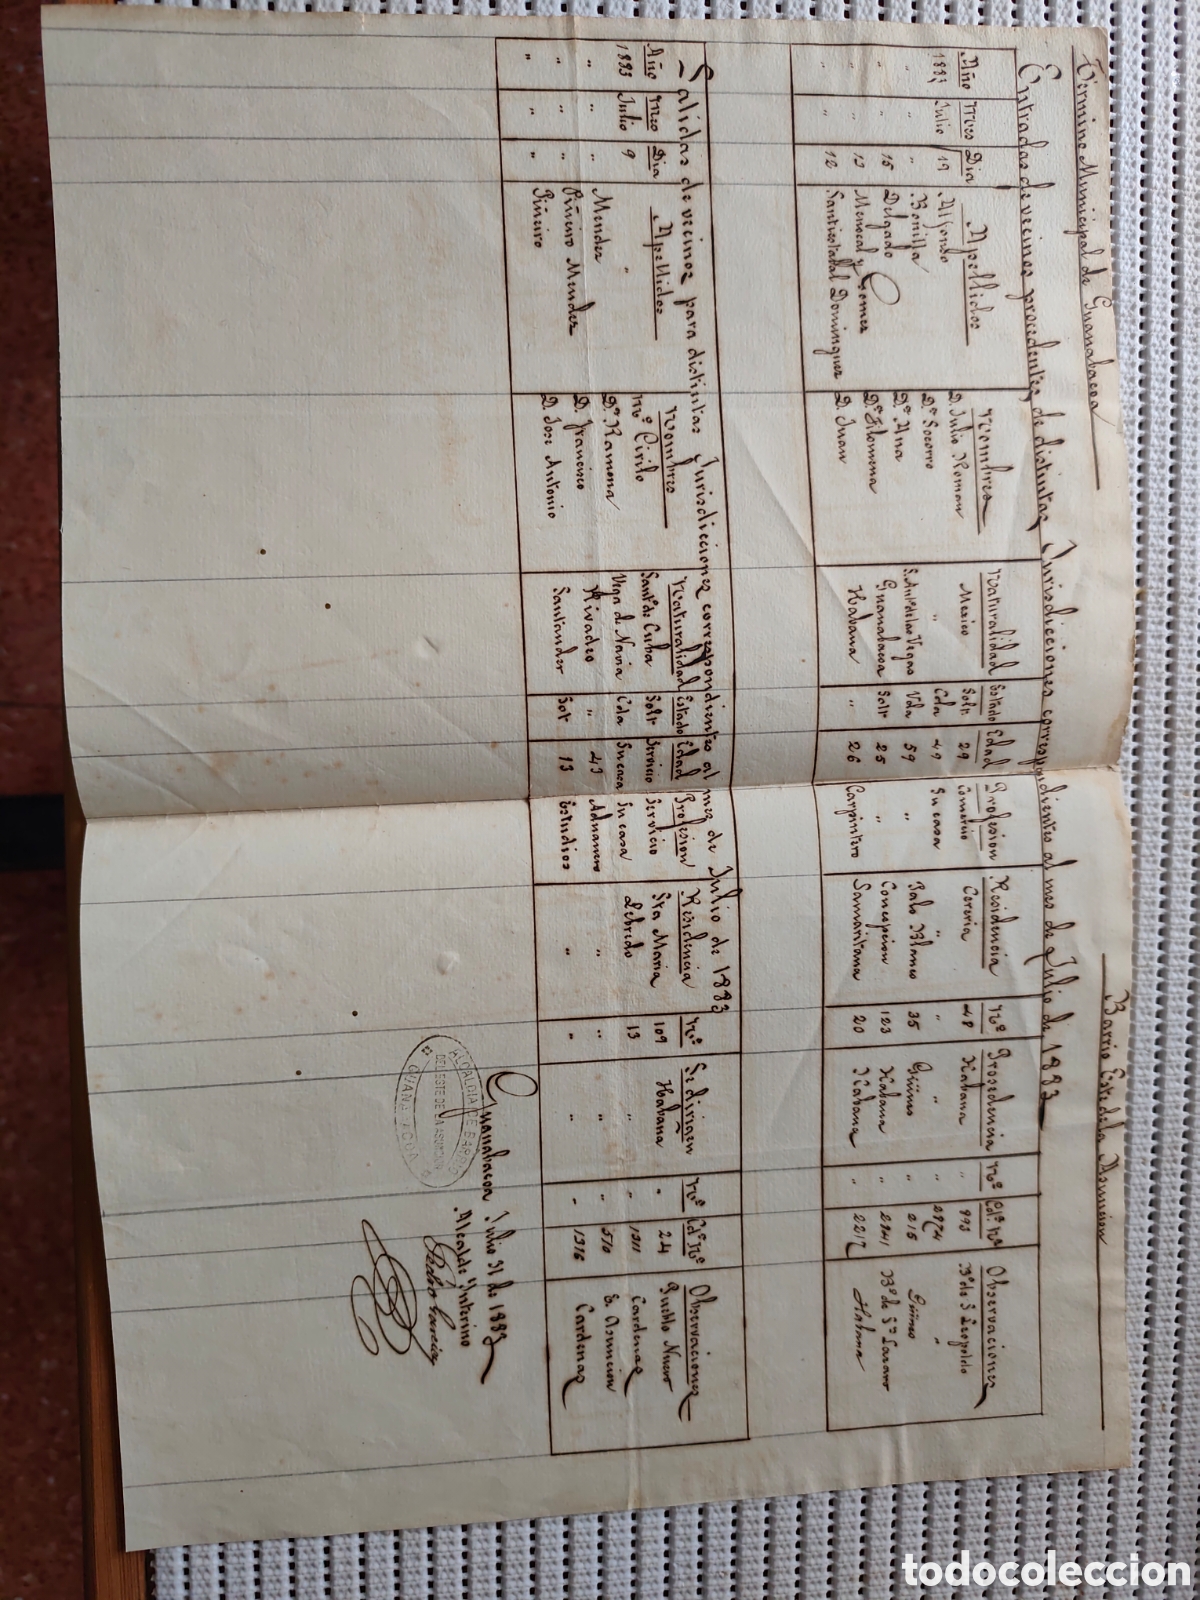 Término Municipal de Guanabacoa
Barrio Este de la Asuncion
Entradas de vecinos procedentes de distintas Jurisdicciones correspondientes al mes de Julio de 1883
Año Mes Dia Apellidos Nombres Naturalidad Estado Edad Profesion Residencia Nº Prosedencia Nº Cdª Nº Observaciones
1883 Julio 19 Alfonso D. Julio Roman Mexico Soltº 29 Comercio Cereria 48 Habana " 993 Bº de S Leopoldo
" " " Bonilla Dª Socorro " Cda 49 Su casa " " " " 2874 "
" " 15 Delgado Dª Ana S. Antº de las Vegas Vda 59 " Palo Blanco 35 Güines " 215 Güines
" " 13 Menocal y Gomez Dª Filomena Guanabacoa Soltª 25 " Concepcion 123 Habana " 2841 Bº de Sn Lazaro
" " 12 Dominguez D. Juan Habana " 26 Carpintero Samaritana 20 Habana " 2217 Habana
Salidas de vecinos para distintas Jurisdicciones correspondientes al mes de Julio de 1883
Año Mes Dia Apellidos Nombres Naturalidad Estado Edad Profesion Residencia Nº Se dirigen Nº Cdª Nº Observaciones
1883 Julio 9 " Mº Cirilo Santº de Cuba Soltº Servicio Servicio Sta Maria 109 Habana " 24 Pueblo Nuevo
" " " Mendez Dª Ramona Vega de Navia Cda Su casa Su casa Lebredo 13 " " 1311 Cardenas
" " " Piñeiro Mendez D. Francisco Rivadeo " 43 Aduanero " " " " 510 E. Asuncion
" " " Piñeiro D. Jose Antonio Santander Sol 13 Estudios " " " " 1316 Cardenas
Guanabacoa Julio 31 de 1883
Alcalde Interino
Pedro Garcia
ALCALDIA DE BARRIO
DEL ESTE DE LA ASUNCION
GUANABACOA
todocoleccion